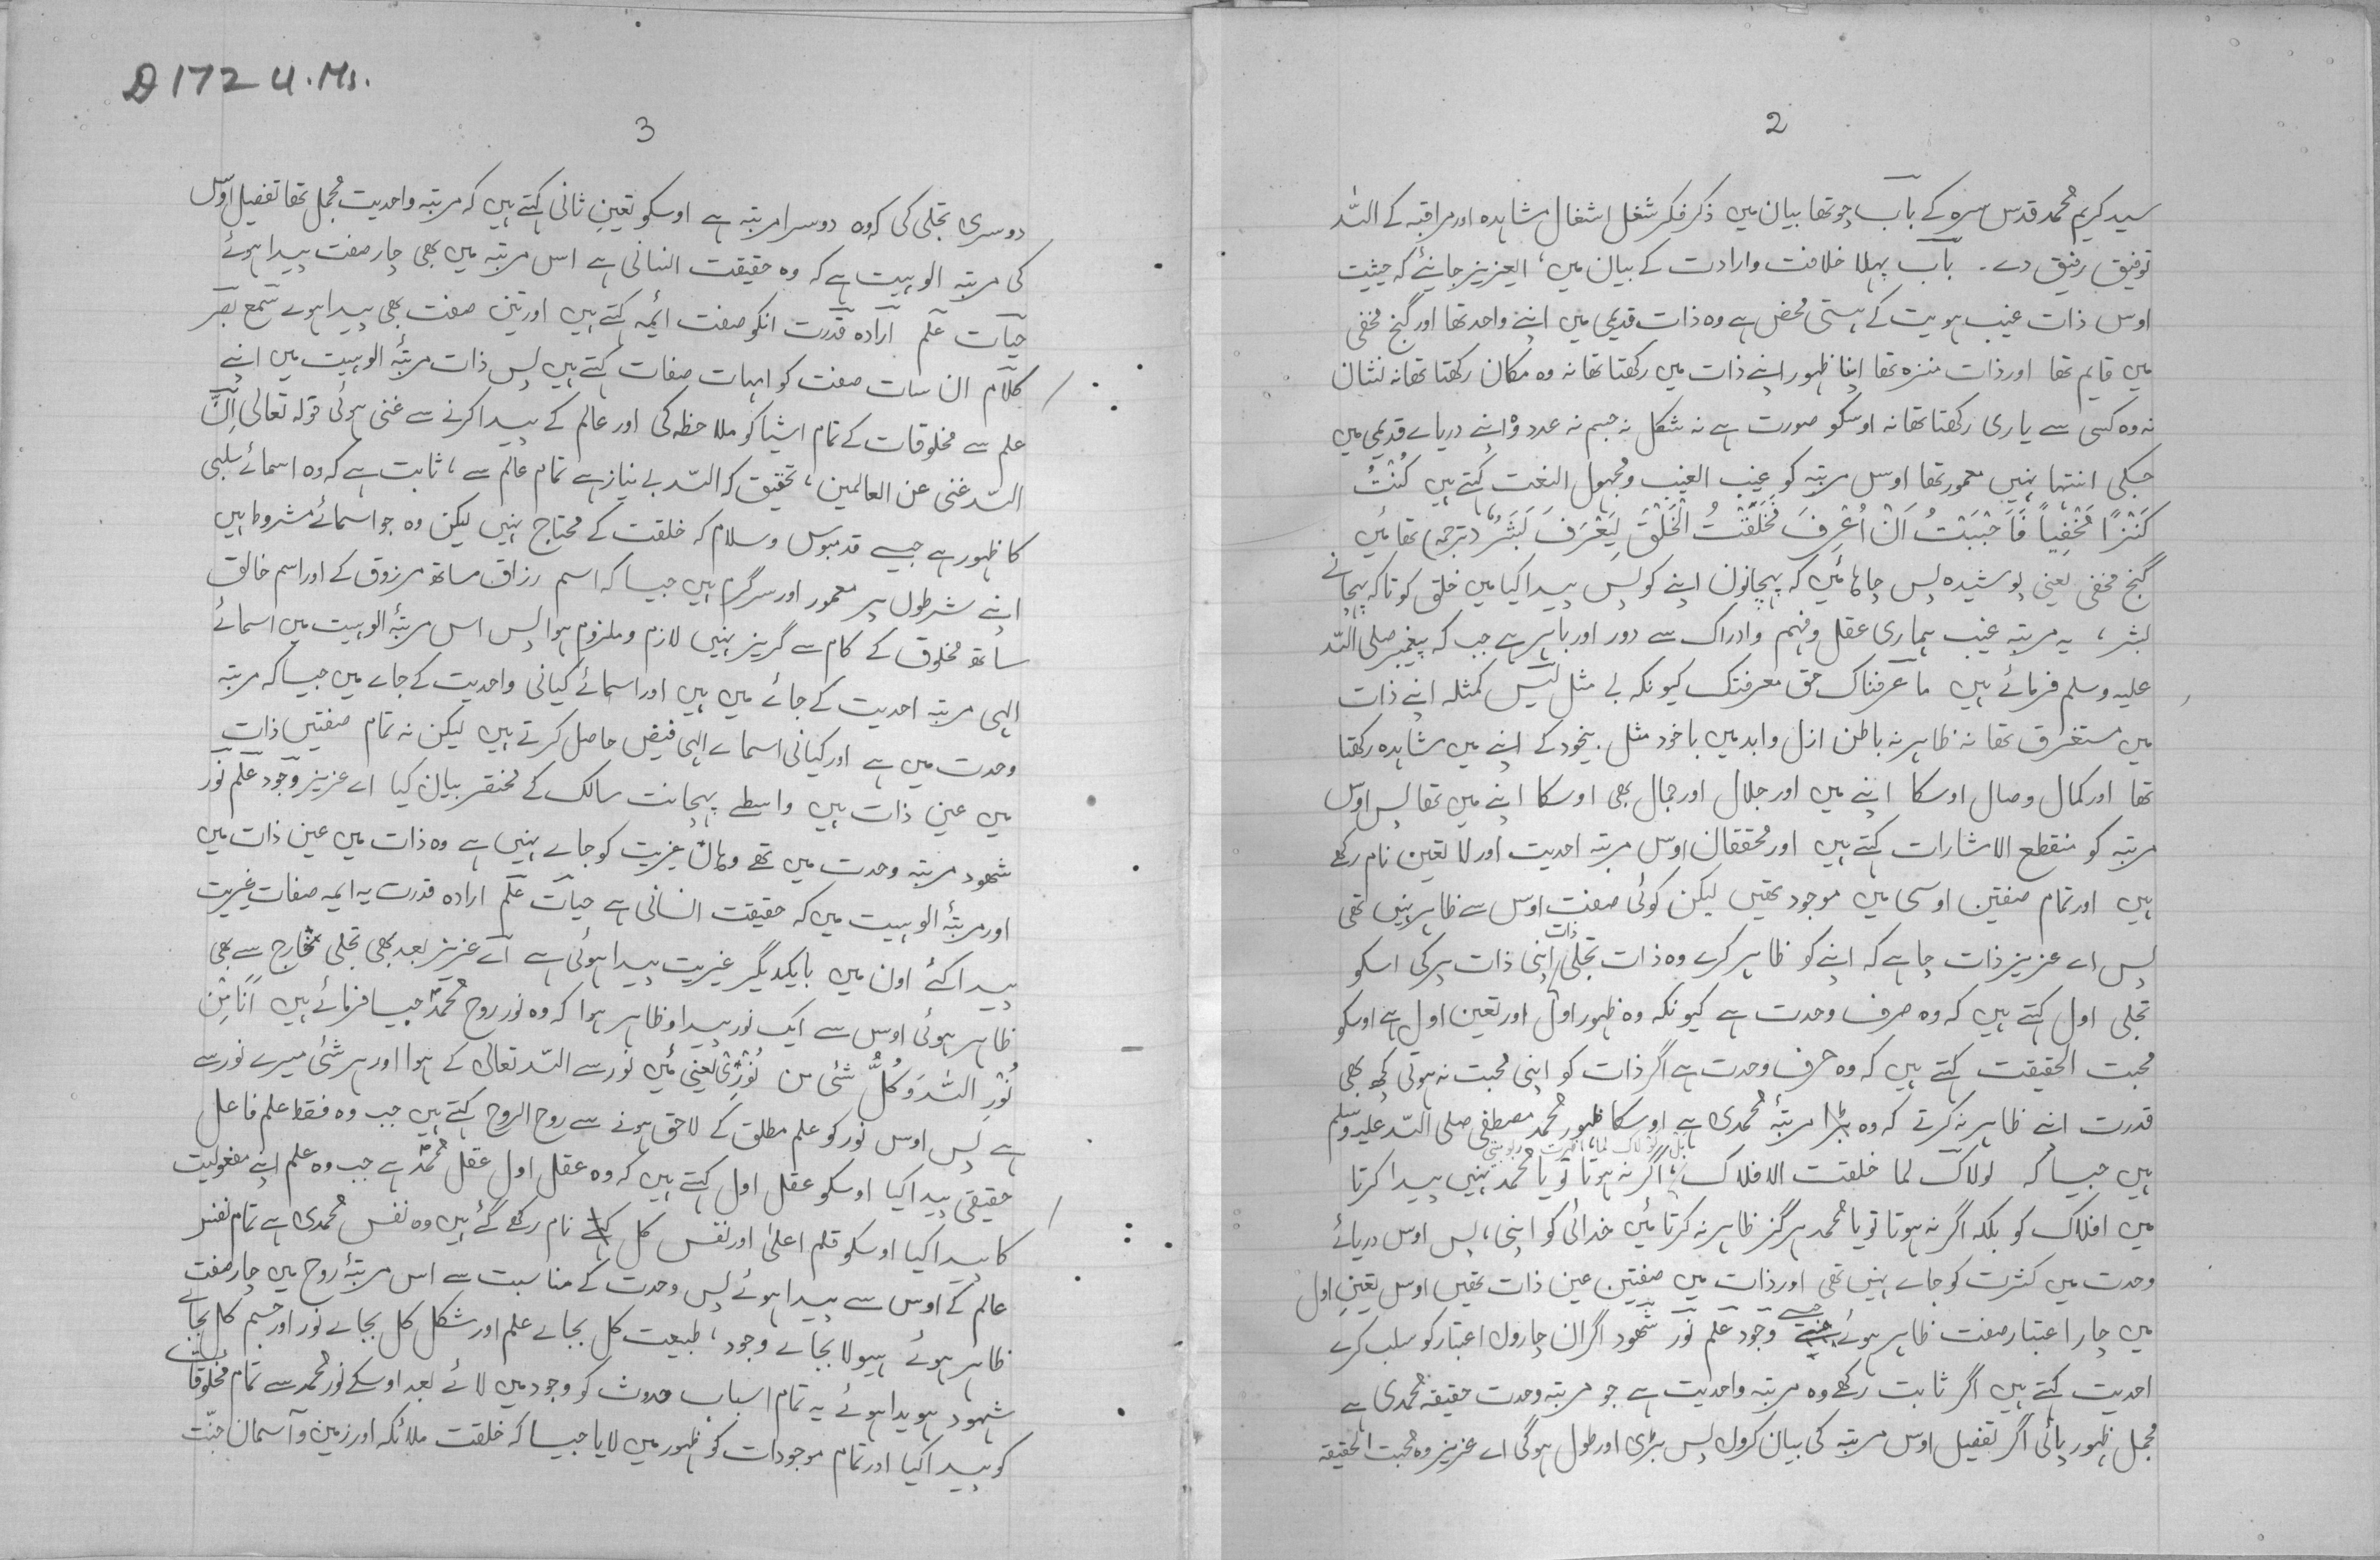 2
سید کریم محمد قدس سره کے باب چوتھا بیان میں ذکر فکر شغل اشغال مشاہدہ اور مراقبہ کے اللہ
توفیق رفیق دے ۔ باب پہلا خلافت وارادت کے بیان میں، العزیز جانیئے کہ حیثیت
اوس ذات غیب ہویت کے ہستی محض ہے وہ ذات قدیمی میں اپنے واحد تھا اور گنج مخفی
میں قایم تھا اور ذات منزہ تھا اپنا ظہور اپنے ذات میں رکھتا تھا نہ وہ مکان رکھتا تھا نہ نشان
نہ وہ کسی سے یاری رکھتا تھا نہ اوسکو صورت ہے نہ شکل نہ جسم نہ عدد وْ اپنے دریاے قدیمی میں
جسکی انتہا نہیں معمور تھا اوس مرتبہ کو غیب الغیب و مجہول النعت کہتے ہیں کُنْتُ
کَنْزًا مَخْفِیاً فَاَحْبَبْتُ اَنْ اُعْرِفَ فَخَلَقْتُ الْخَلْقَ لِیَعْرَفَ بَشَرُ (ترجمہ) تھا مَیں
گنج مخفی یعنی پوشیدہ پس چاہا مَیں کہ پہچانوں اپنے کو پس پیدا کیا میں خلق کو تاکہ پہچانے
بشر، یہ مرتبہ غیب ہماری عقل و فہم وادراک سے دور اور باہر ہے جب کہ پیغمبر صلی اللہ
علیہ وسلم فرمائے ہیں ما عرفناک حق معرفتک کیونکہ بے مثل لیس کمثلہ اپنے ذات
میں مستغرق تھا نہ ظاہر نہ باطن ازل وابد میں باخود مثل بیخود کے اپنے میں مشاہدہ رکھتا
تھا اور کمال وصال اوسکا اپنے میں اور جلال اور جمال بھی اوسکا اپنے میں تھا پس اوس
مرتبہ کو منقطع الاشارات کہتے ہیں اور محققان اوس مرتبہ احدیت اور لا تعین نام رکھے
ہیں اور تمام صفتین اوسی میں موجود تھیں لیکن کوئی صفت اوس سے ظاہر نہیں تھی
پس اے عزیز ذات چاہے کہ اپنے کو ظاہر کرے وہ ذات تجلی ذات اپنی ذات پر کی اسکو
تجلی اول کہتے ہیں کہ وہ صرف وحدت ہے کیونکہ وہ ظہور اول اور تعین اول ہے اوسکو
محبت الحقیقت کہتے ہیں کہ وہ حرف وحدت ہے اگر ذات کو اپنی محبت نہ ہوتی کچھ بھی
قدرت اپنے ظاہر نہ کرتے کہ وہ بڑا مرتبۂ محمدی ہے اوسکا ظہور محمد مصطفی صلی اللہ علیہ وسلم
ہیں جیسا کہ لولاک لما خلقت الافلاک، اگر نہ ہوتا تو یا محمد نہیں پیدا کرتا
میں افلاک کو بلکہ اگر نہ ہوتا تو یا محمد ہرگز ظاہر نہ کرتا مَیں خدائی کو اپنی، پس اوس دریائے
وحدت میں کثرت کو جاے نہیں تھی اور ذات میں صفتین عین ذات تھیں اوس تعین اول
میں چار اعتبار صفت ظاہر ہوئے جیسے وجود علم نور شہود اگر ان چاروں اعتبار کو سلب کرے
احدیت کہتے ہیں اگر ثابت رکھے وہ مرتبہ واحدیت ہے جو مرتبہ وحدت حقیقۃ محمدی ہے
مجمل ظہور پائی اگر تفصیل اوس مرتبہ کی بیان کروں پس بڑی اور طول ہوگی اے عزیز وہ محبت الحقیقہ
D 172 U.Ms.
3
دوسری تجلی کی کہ وہ دوسرا مرتبہ ہے اوسکو تعین ثانی کہتے ہیں کہ مرتبہ واحدیت مجمل تھا تفصیل اوس
کی مرتبہ الوہیت ہے کہ وہ حقیقت انسانی ہے اس مرتبہ میں بھی چار صفت پیدا ہوئے
حیات علم ارادہ قدرت انکو صفت ائمہ کہتے ہیں اور تین صفت بھی پیدا ہوے سمع بصر
کلام ان سات صفت کو امہات صفات کہتے ہیں پس ذات مرتبۂ الوہیت میں اپنے
علم سے مخلوقات کے تمام اشیا کو ملاحظہ کی اور عالم کے پیدا کرنے سے غنی ہوئی قولہ تعالی اِنَّ
اللہ غنی عن العالمین، تحقیق کہ اللہ بے نیاز ہے تمام عالم سے، ثابت ہے کہ وہ اسمائے سلبی
کا ظہور ہے جیسے قدوس وسلام کہ خلقت کے محتاج نہیں لیکن وہ جو اسمائے مشروط ہیں
اپنے شرطوں پر معمور اور سرگرم ہیں جیسا کہ اسم رزاق ساتھ مرزوق کے اور اسم خالق
ساتھ مخلوق کے کام سے گریز نہیں لازم وملزوم ہوا پس اس مرتبۂ الوہیت میں اسمائے
الہی مرتبہ احدیت کے جائے میں ہیں اور اسمائے کیانی واحدیت کے جاے میں جیسا کہ مرتبہ
وحدت میں ہے اور کیانی اسماے الہی فیض حاصل کرتے ہیں لیکن نہ تمام صفتیں ذات
میں عین ذات ہیں واسطے پہچانت سالک کے مختصر بیان کیا اے عزیز وجود علم نور
شہود مرتبہ وحدت میں تھے وہاں غیریت کو جاے نہیں ہے وہ ذات میں عین ذات میں
اور مرتبۂ الوہیت میں کہ حقیقت انسانی ہے حیات علم ارادہ قدرت یہ ایمہ صفات غیریت
پیدا کئے اون میں بایکدیگر غیریت پیدا ہوئی ہے اے عزیز بعد بھی تجلی خارج سے بھی
ظاہر ہوئی اوس سے ایک نور پیدا وظاہر ہوا کہ وہ نور روح محمد جیسا فرمائے ہیں اَنَا مِن
نُوْرِ اللہ وَکُلُّ شئی من نُوْرِیْ یعنی مَیں نور سے اللہ تعالی کے ہوا اور ہر شئی میرے نور سے
ہے پس اوس نور کو علم مطلق کے لاحق ہونے سے روح الروح کہتے ہیں جب وہ فقط علم فاعل
حقیقی پیدا کیا اوسکو عقل اول کہتے ہیں کہ وہ عقل اول عقل محمد ہے جب وہ علم اپنے مفعولیت
کا پیدا کیا اوسکو قلم اعلیٰ اور نفس کل نام رکھے گئے ہیں وہ نفس محمدی ہے تمام نفس
عالم کے اوس سے پیدا ہوئے پس وحدت کے مناسبت سے اس مرتبۂ روح میں چار صفت
ظاہر ہوئے ہیولا بجاے وجود، طبیعت کل بجاے علم اور شکل کل بجاے نور اور جسم کل بجاے
شہود ہویدا ہوئے یہ تمام اسباب حدوث کو وجود میں لائے بعد اوسکے نور محمد سے تمام مخلوقات
کو پیدا کیا اور تمام موجودات کو ظہور میں لایا جیسا کہ خلقت ملائکہ اور زمین وآسمان جنت